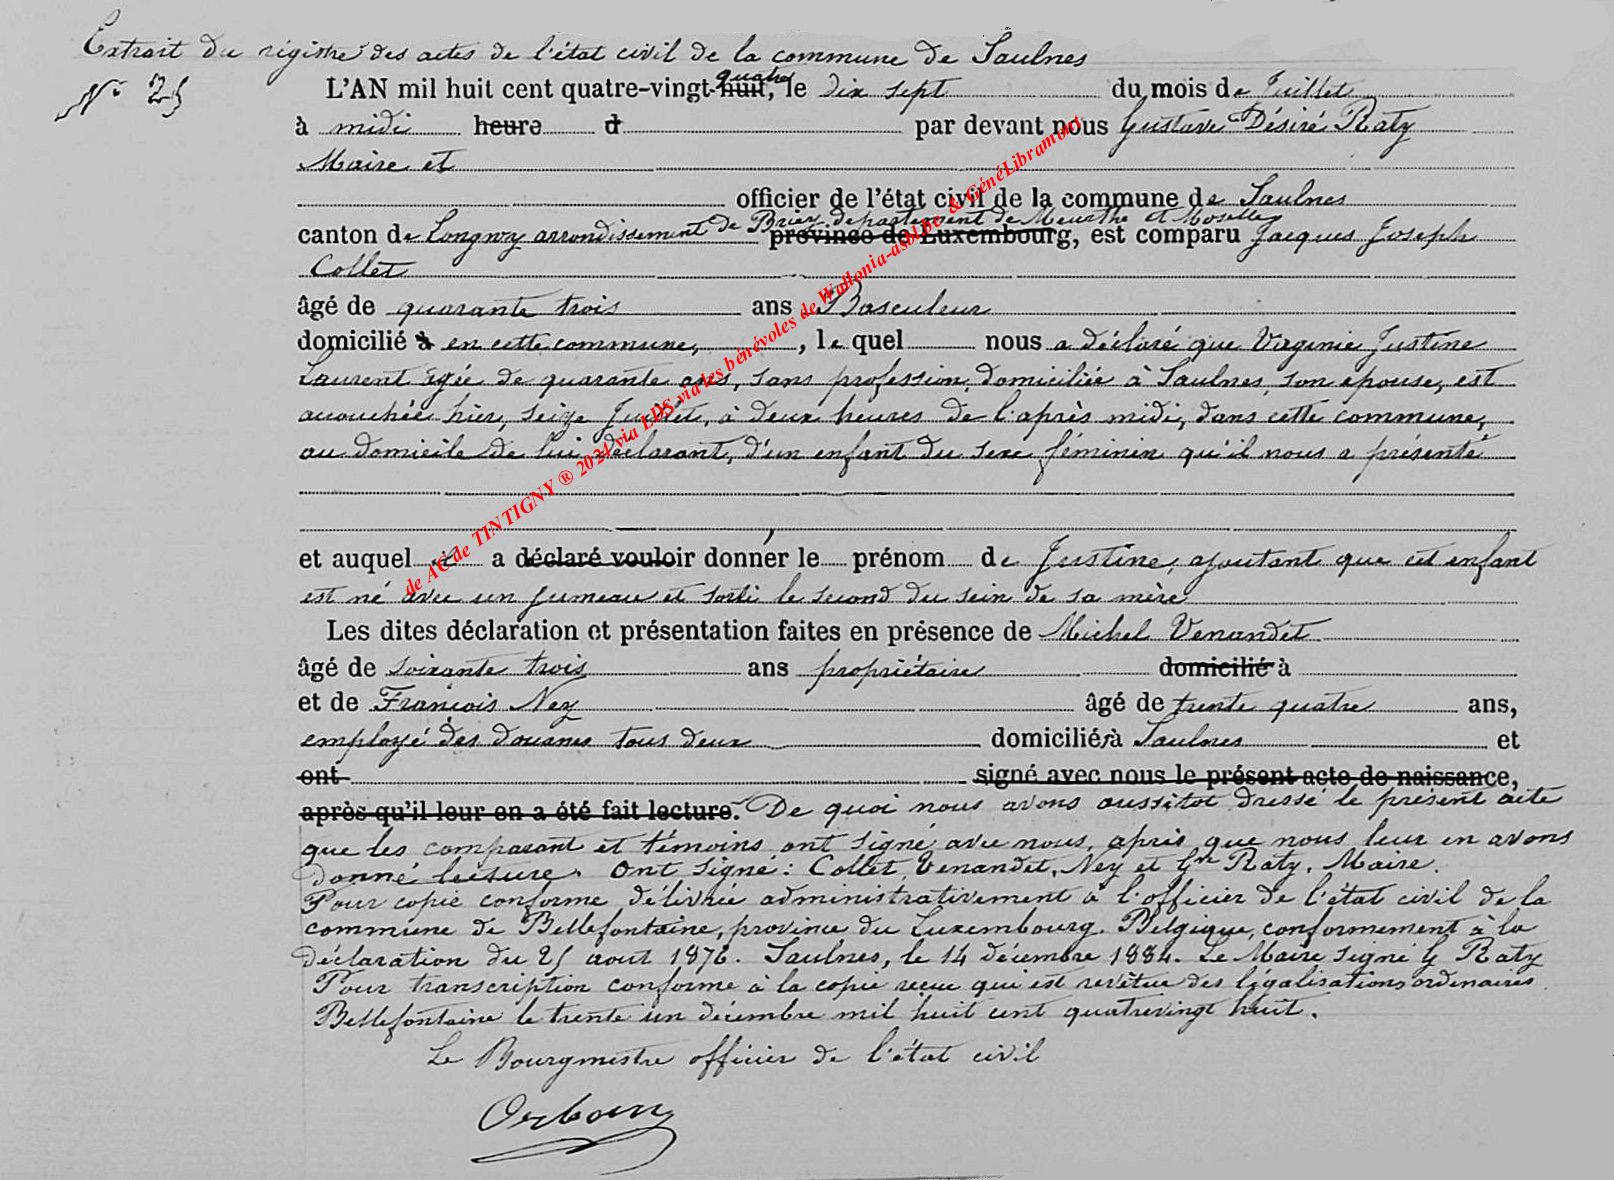 Extrait du régistre des actes de l'état civil de la commune de Saulnes
N° 25
L'AN mil huit cent quatre-vingt-huit, quatre le dix sept du mois de Juillet
à midi heure d par devant nous Gustave Désiré Raty
Maire et
officier de l'état civil de la commune de Saulnes
canton de Longwy arrondissement de Briey departement de Meurthe et Moselle province de Luxembourg, est comparu Jacques Joseph
Collet
âgé de quarante trois ans Basculeur
domicilié à en cette commune, , le quel nous a déclaré que Virginie Justine
Laurent agée de quarante ans, sans profession, domiciliée à Saulnes, son epouse, est
accouchée hier, seize Juillet, à deux heures de l'après midi, dans cette commune,
au domicile de lui déclarant, d'un enfant du sexe féminin qu'il nous a présenté
,
et auquel il a déclaré vouloir donner le prénom de Justine, ajoutant que cet enfant
est né avec un jumeau et sorti le second du sein de sa mère
Les dites déclaration et présentation faites en présence de Michel Venandet
âgé de soixante trois ans propriétaire domicilié à
et de François Ney âgé de trente quatre ans,
employé des douanes tous deux domiciliés à Saulnes et
ont signé avec nous le présent acte de naissance,
après qu'il leur en a été fait lecture. De quoi nous avons aussitot dressé le présent acte
que les comparant et témoins ont signé avec nous, après que nous leur en avons
donné lecture. Ont signé : Collet, Venandet, Ney et Gve Raty, Maire.
Pour copie conforme délivrée administrativement à l'officier de l'état civil de la
commune de Bellefontaine, province du Luxembourg. Belgique, conformement à la
déclaration du 25 aout 1876. Saulnes, le 14 décembre 1884. Le Maire signé G Raty
Pour transcription conforme à la copie reçue qui est revêtue des légalisations ordinaires.
Bellefontaine le trente un décembre mil huit cent quatrevingt huit.
Le Bourgmestre officier de l'état civil
de AC de TINTIGNY ® 2024 via LDS via les bénévoles de Wallonia-asbl.be & GénéLibramont